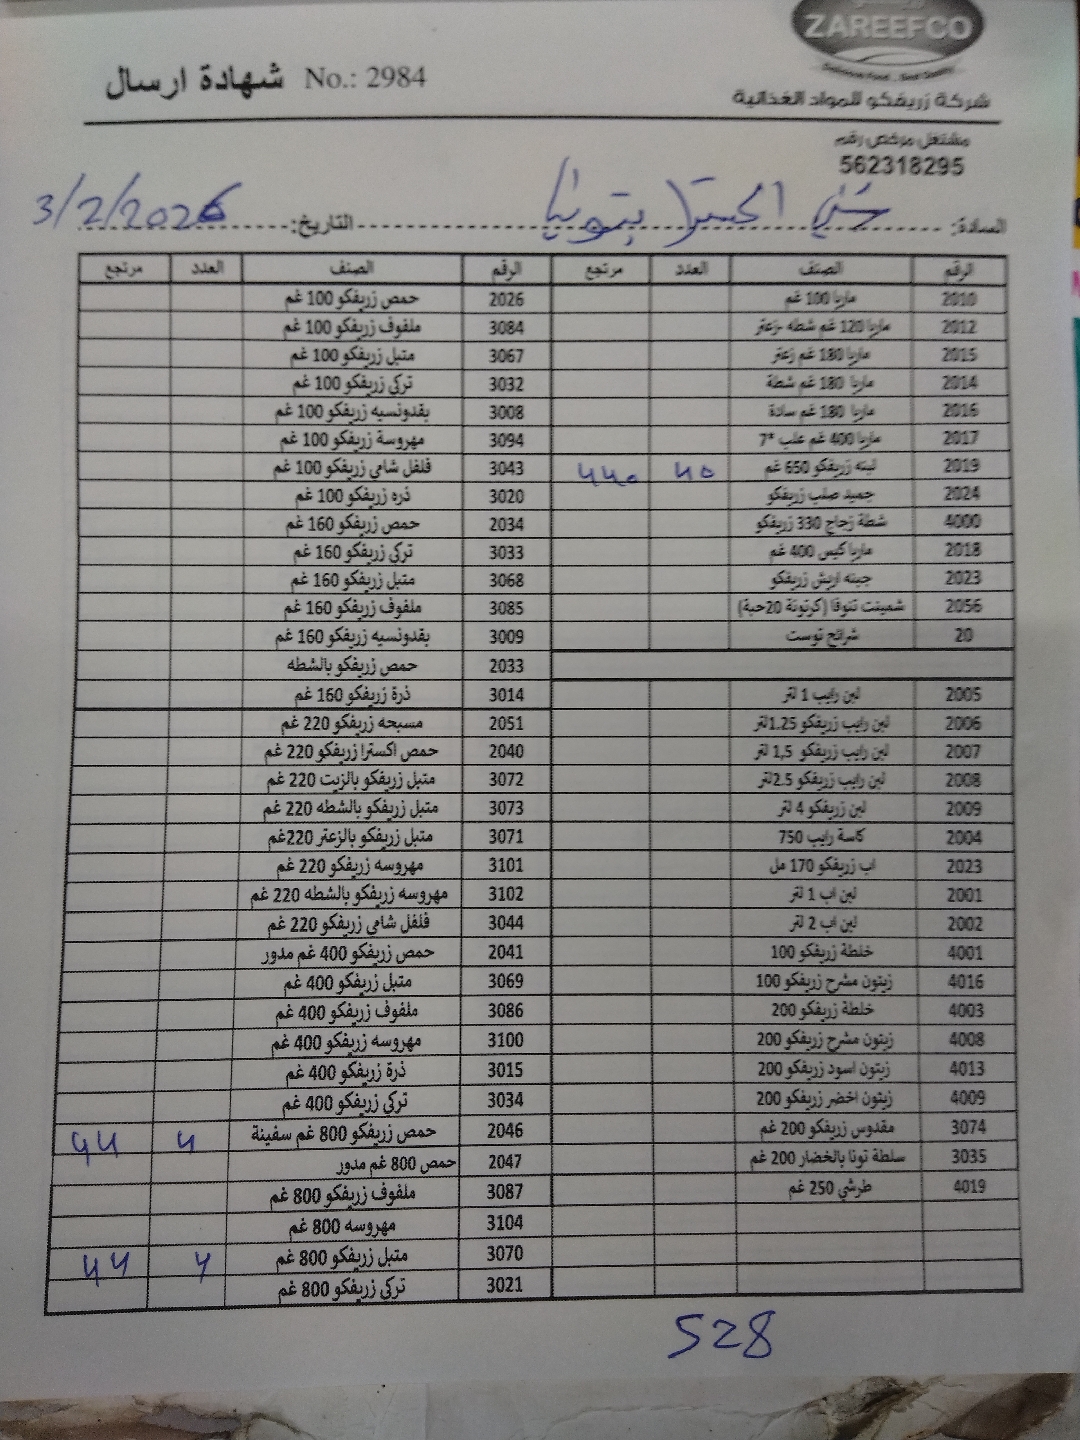 ZAREEFCO
شهادة ارسال No.: 2984
شركة زريفكو للمواد الغذائية
مشتغل مرخص رقم
562318295
السادة: التاريخ: 3/2/2026
الرقم الصنف العدد مرتجع الرقم الصنف العدد مرتجع
2010 ماريا 100 غم 2026 حمص زريفكو 100 غم
2012 ماريا 120 غم شطه -زعتر 3084 ملفوف زريفكو 100 غم
2015 ماريا 180 غم زعتر 3067 متبل زريفكو 100 غم
2014 ماريا 180 غم شطة 3032 تركي زريفكو 100 غم
2016 ماريا 180 غم سادة 3008 بقدونسيه زريفكو 100 غم
2017 ماريا 400 غم علب *7 3094 مهروسة زريفكو 100 غم
2019 لبنه زريفكو 650 غم 40 440 3043 فلفل شامي زريفكو 100 غم
2024 جميد صلب زريفكو 3020 ذره زريفكو 100 غم
4000 شطة زجاج 330 زريفكو 2034 حمص زريفكو 160 غم
2018 ماريا كيس 400 غم 3033 تركي زريفكو 160 غم
2023 جبنه اريش زريفكو 3068 متبل زريفكو 160 غم
2056 شمينت تنوفا (كرتونة 20حبة) 3085 ملفوف زريفكو 160 غم
20 شرائح توست 3009 بقدونسيه زريفكو 160 غم
2033 حمص زريفكو بالشطه
2005 لبن رايب 1 لتر 3014 ذرة زريفكو 160 غم
2006 لبن رايب زريفكو 1.25لتر 2051 مسبحه زريفكو 220 غم
2007 لبن رايب زريفكو 1,5 لتر 2040 حمص اكسترا زريفكو 220 غم
2008 لبن رايب زريفكو 2.5لتر 3072 متبل زريفكو بالزيت 220 غم
2009 لبن زريفكو 4 لتر 3073 متبل زريفكو بالشطه 220 غم
2004 كاسة رايب 750 3071 متبل زريفكو بالزعتر 220غم
2023 اب زريفكو 170 مل 3101 مهروسه زريفكو 220 غم
2001 لبن اب 1 لتر 3102 مهروسه زريفكو بالشطه 220 غم
2002 لبن اب 2 لتر 3044 فلفل شامي زريفكو 220 غم
4001 خلطة زريفكو 100 2041 حمص زريفكو 400 غم مدور
4016 زيتون مشرح زريفكو 100 3069 متبل زريفكو 400 غم
4003 خلطة زريفكو 200 3086 ملفوف زريفكو 400 غم
4008 زيتون مشرح زريفكو 200 3100 مهروسه زريفكو 400 غم
4013 زيتون اسود زريفكو 200 3015 ذرة زريفكو 400 غم
4009 زيتون اخضر زريفكو 200 3034 تركي زريفكو 400 غم
3074 مقدوس زريفكو 200 غم 2046 حمص زريفكو 800 غم سفينة 4 44
3035 سلطة تونا بالخضار 200 غم 2047 حمص 800 غم مدور
4019 طرشي 250 غم 3087 ملفوف زريفكو 800 غم
3104 مهروسه 800 غم
3070 متبل زريفكو 800 غم 4 44
3021 تركي زريفكو 800 غم
528